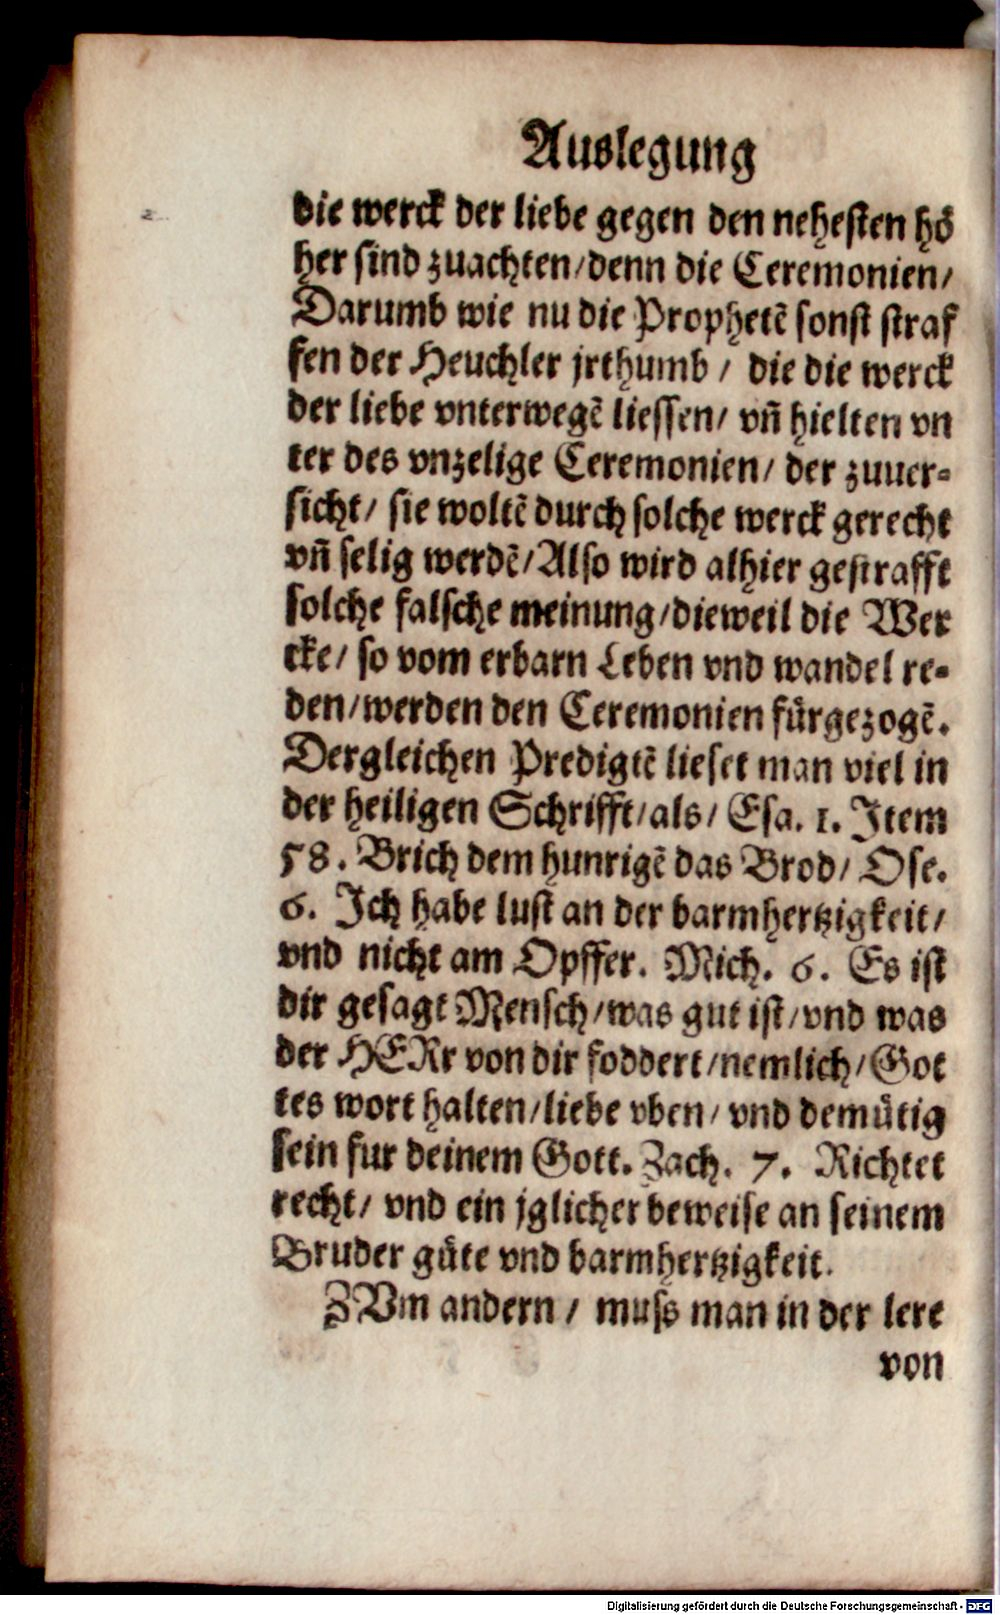 Auslegung
die werck der liebe gegen den nehesten hö
her sind zuachten/denn die Ceremonien/
Darumb wie nu die Prophetē sonst straf
fen der Heuchler jrthumb / die die werck
der liebe vnterwegē liessen/ vn̄ hielten vn
ter des vnzelige Ceremonien/ der zuuer-
sicht/ sie woltē durch solche werck gerecht
vn̄ selig werdē/Also wird alhier gestrafft
solche falsche meinung/dieweil die Wer
cke/ so vom erbarn Leben vnd wandel re-
den/werden den Ceremonien fürgezogē.
Dergleichen Predigtē lieset man viel in
der heiligen Schrifft/als/ Esa. 1. Item
58. Brich dem hunrigē das Brod/ Ose.
6. Ich habe lust an der barmhertzigkeit/
vnd nicht am Opffer. Mich. 6. Es ist
dir gesagt Mensch/was gut ist/vnd was
der HERr von dir foddert/nemlich/Got
tes wort halten/liebe vben/ vnd demütig
sein fur deinem Gott. Zach. 7. Richtet
recht/ vnd ein jglicher beweise an seinem
Bruder güte vnd barmhertzigkeit.
ZVm andern / muss man in der lere
von
Digitalisierung gefördert durch die Deutsche Forschungsgemeinschaft - DFG